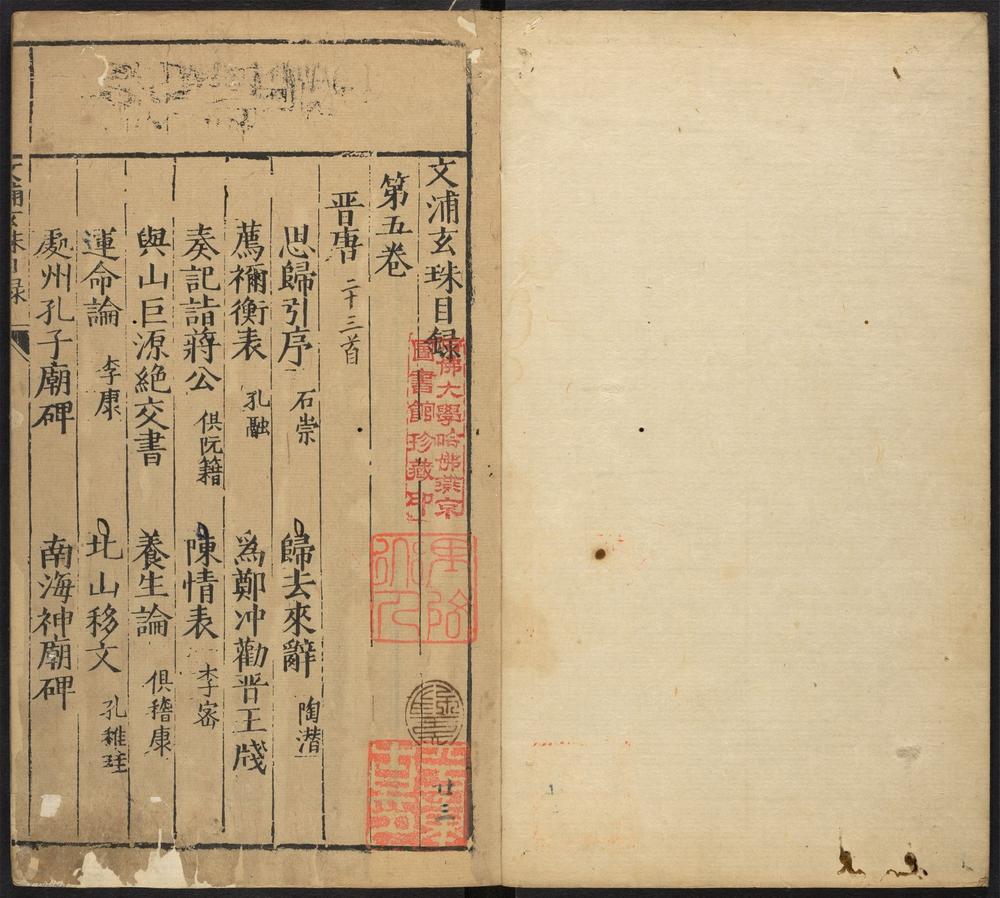 文浦玄珠目録
第五卷
晋唐 二十三首
思歸引序 石崇 歸去來辭 陶潛
薦禰衡表 孔融 為鄭冲勸晋王牋
奏記詣蔣公 俱阮籍 陳情表 李宻
與山巨源絶交書 養生論 俱嵇康
運命論 李康 北山移文 孔稚珪
處州孔子廟碑 南海神廟碑
文浦玄珠目録
哈佛大學哈佛燕京
圖書館珍藏印
廿三